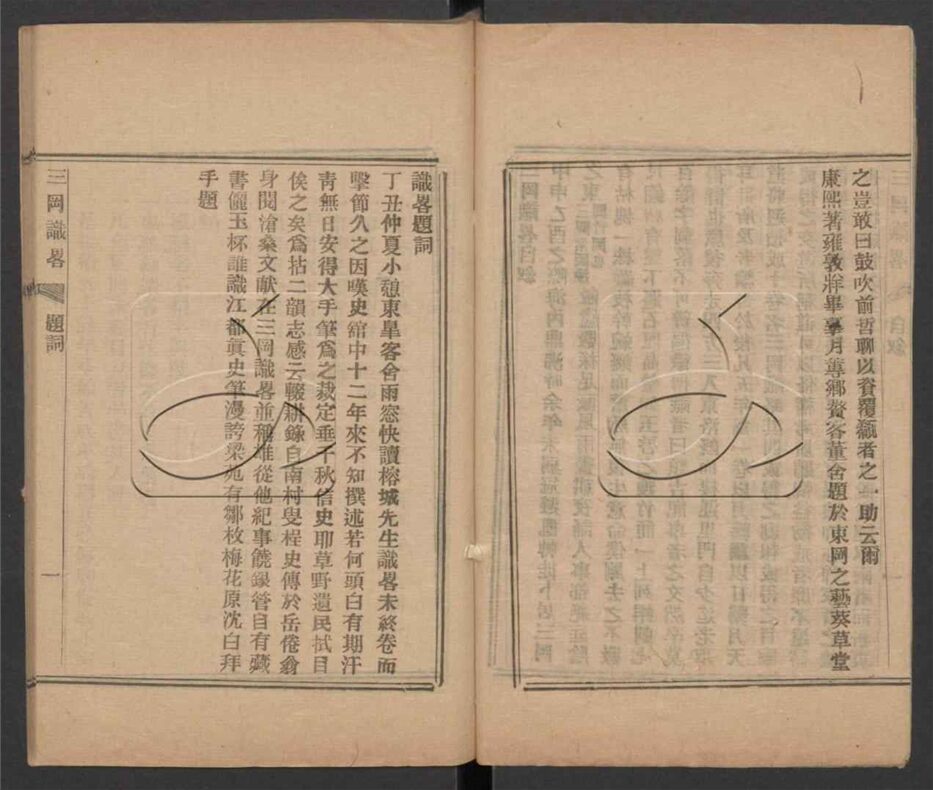 之豈敢曰鼓吹前哲聊以資覆瓿者之一助云爾
康熙著雍敦牂畢辜月蓴鄉贅客董含題於東岡之藝葵草堂
識畧題詞
丁丑仲夏小憩東臯客舍雨窓快讀榕城先生識畧未終卷而
擊節久之因嘆史舘中十二年來不知撰述若何頭白有期汗
靑無日安得大手筆爲之裁定垂千秋信史耶草野遺民拭目
俟之矣爲拈二韻志感云輟耕錄自南村叟桯史傳於岳倦翁
身閱滄桑文献在三岡識畧並稱雄從他紀事饒銀管自有藏
書儷玉杯誰識江都眞史筆漫誇梁苑有鄒枚梅花原沈白拜
手題
三岡識畧
題詞
一